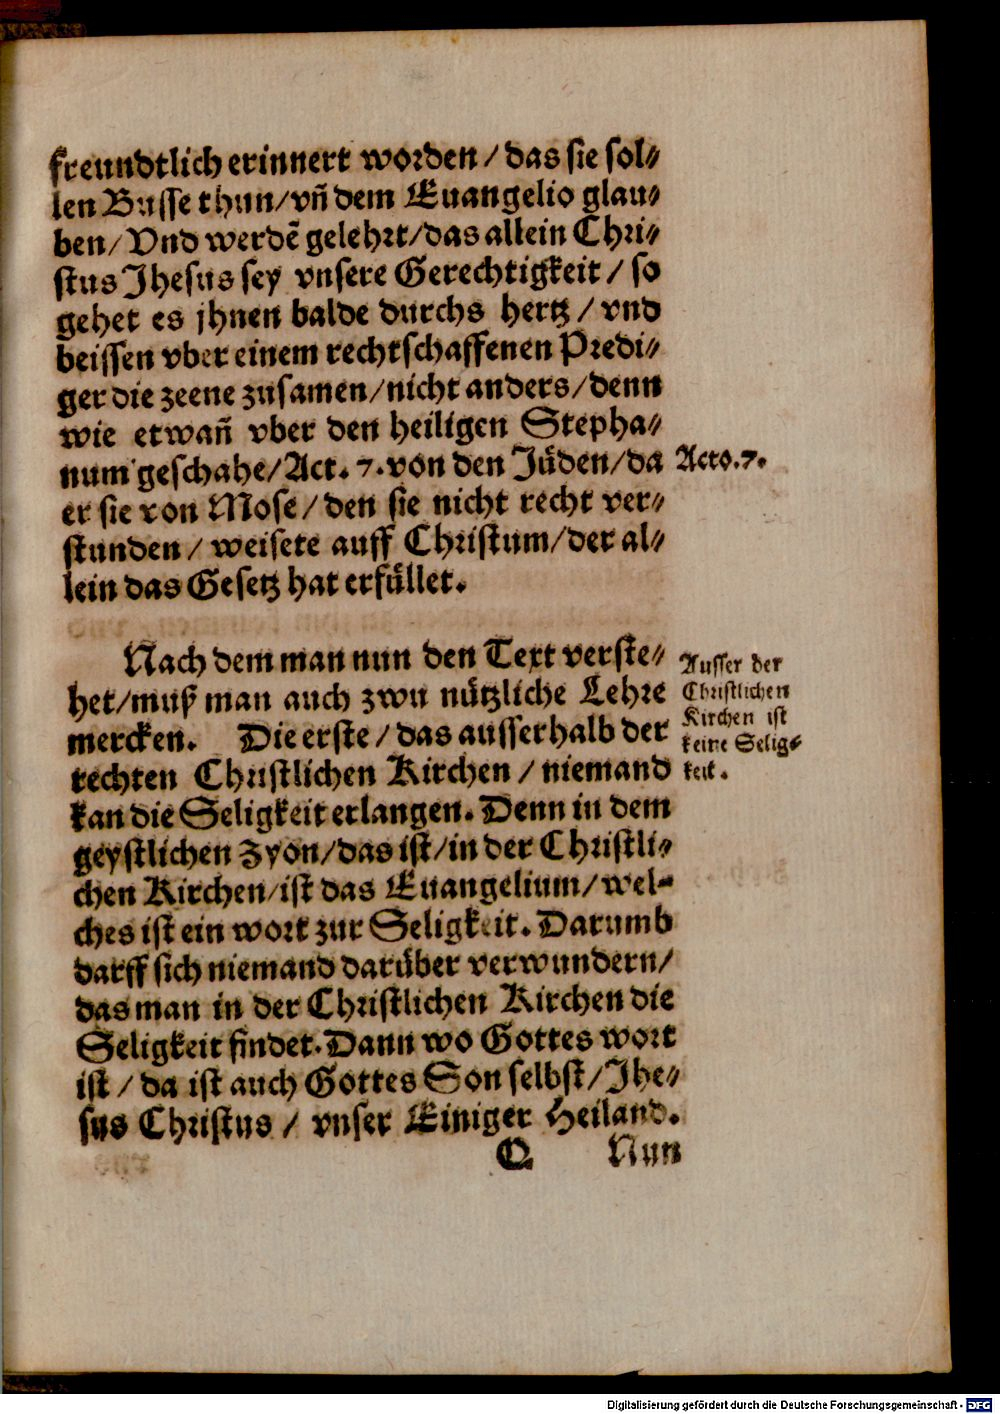 freundtlich erinnert worden / das sie sol⸗
len Busse thun/vñ dem Euangelio glau⸗
ben/ Vnd werdē gelehrt/das allein Chri⸗
stus Jhesus sey vnsere Gerechtigkeit / so
gehet es jhnen balde durchs hertz / vnd
beissen vber einem rechtschaffenen Predi⸗
ger die zeene zusamen/nicht anders/denn
wie etwañ vber den heiligen Stepha⸗
num geschahe/Act. 7. von den Jüden/da
er sie von Mose/ den sie nicht recht ver⸗
stunden / weisete auff Christum/der al⸗
lein das Gesetz hat erfüllet.
Acto. 7.
Nach dem man nun den Text verste⸗
het/muß man auch zwu nützliche Lehre
mercken. Die erste / das ausserhalb der
rechten Christlichen Kirchen / niemand
kan die Seligkeit erlangen. Denn in dem
geystlichen Zyon/das ist/in der Christli⸗
chen Kirchen/ist das Euangelium/ wel⸗
ches ist ein wort zur Seligkeit. Darumb
darff sich niemand darüber verwundern/
das man in der Christlichen Kirchen die
Seligkeit findet. Dann wo Gottes wort
ist / da ist auch Gottes Son selbst/ Jhe⸗
sus Christus / vnser Einiger Heiland.
Ausser der
Christlichen
Kirchen ist
keine Selig⸗
keit.
Q Nun
Digitalisierung gefördert durch die Deutsche Forschungsgemeinschaft - DFG